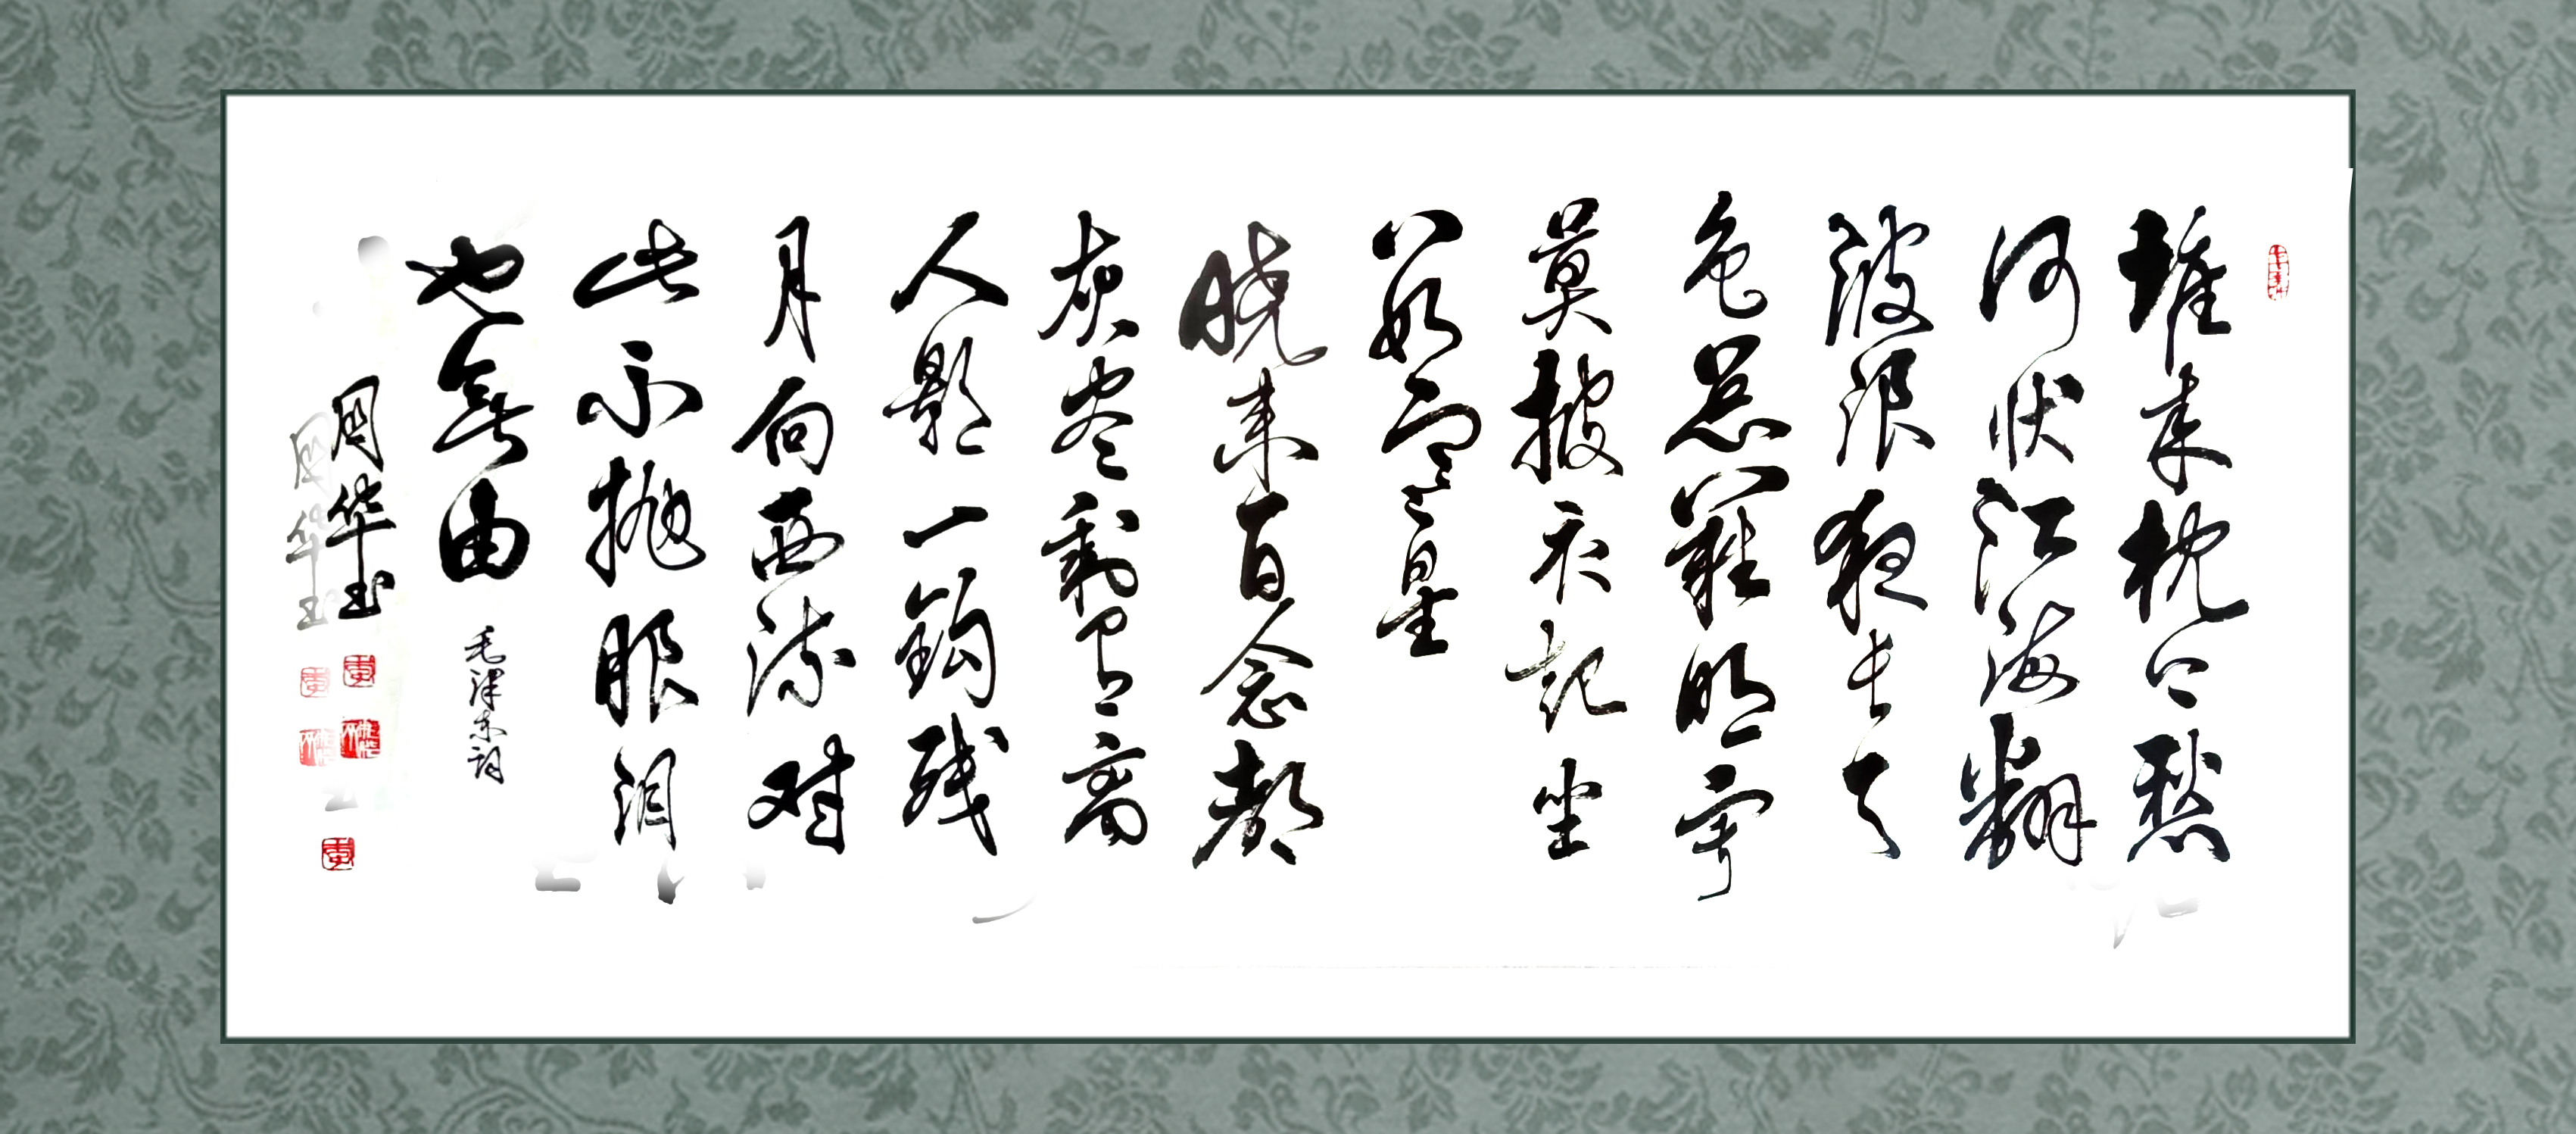 堆来枕上愁
何状江海翻
波浪夜长天
色总難明寂
莫披衣起坐
数寒星
晓来百念都
灰尽剩有离
人影一钩残
月向西流对
此不抛眼泪
也無由
毛泽东词
国华书
国华书